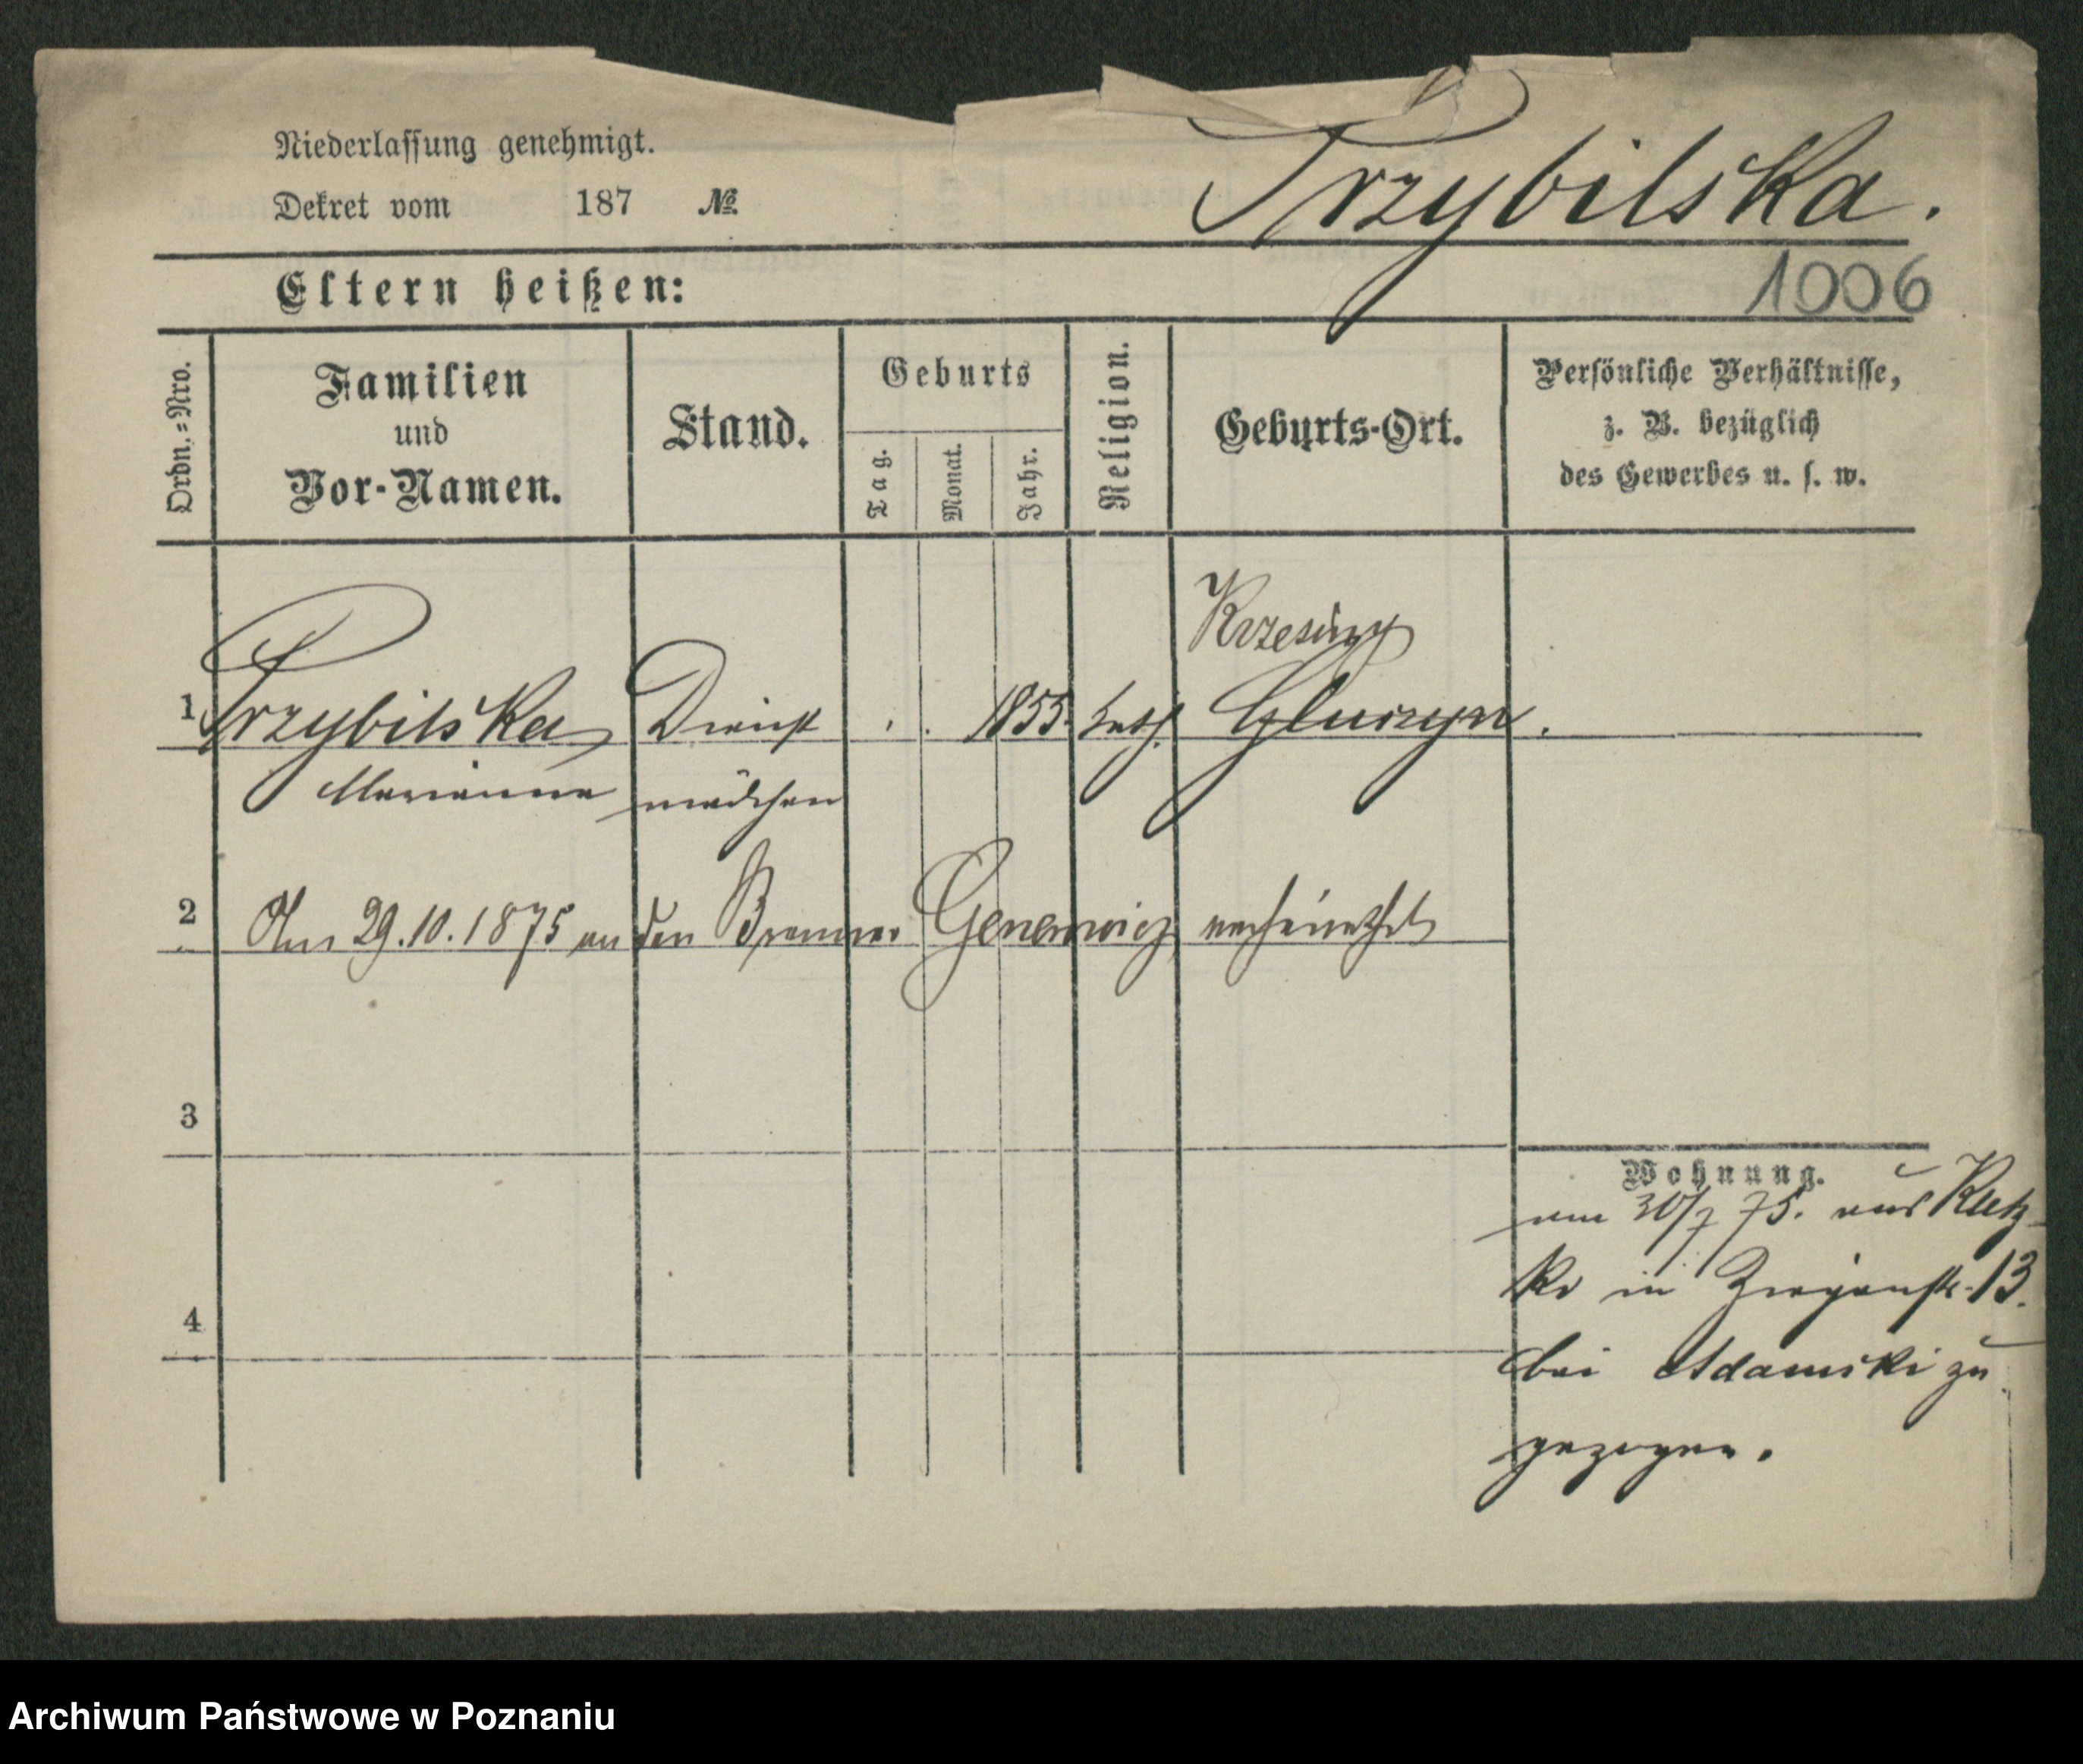 Niederlassung genehmigt.
Dekret vom 187 №
Przybilska.
Eltern heißen:
1006
Ordn.=Nro.
Familien
und
Vor-Namen.
Stand.
Geburts
Tag.
Monat.
Jahr.
Religion.
Geburts-Ort.
Persönliche Verhältnisse,
z. B. bezüglich
des Gewerbes u. s. w.
Krzesiny
1 Przybilska Dienst 1855. kath. Gluszyn.
Marianna mädchen
2 Am 29.10.1875 an den Brenner verheirathet
3
Wohnung.
am 30/7 75. aus
in Ziegenstr. 13.
4
bei Adamski zu
gezogen.
Archiwum Państwowe w Poznaniu